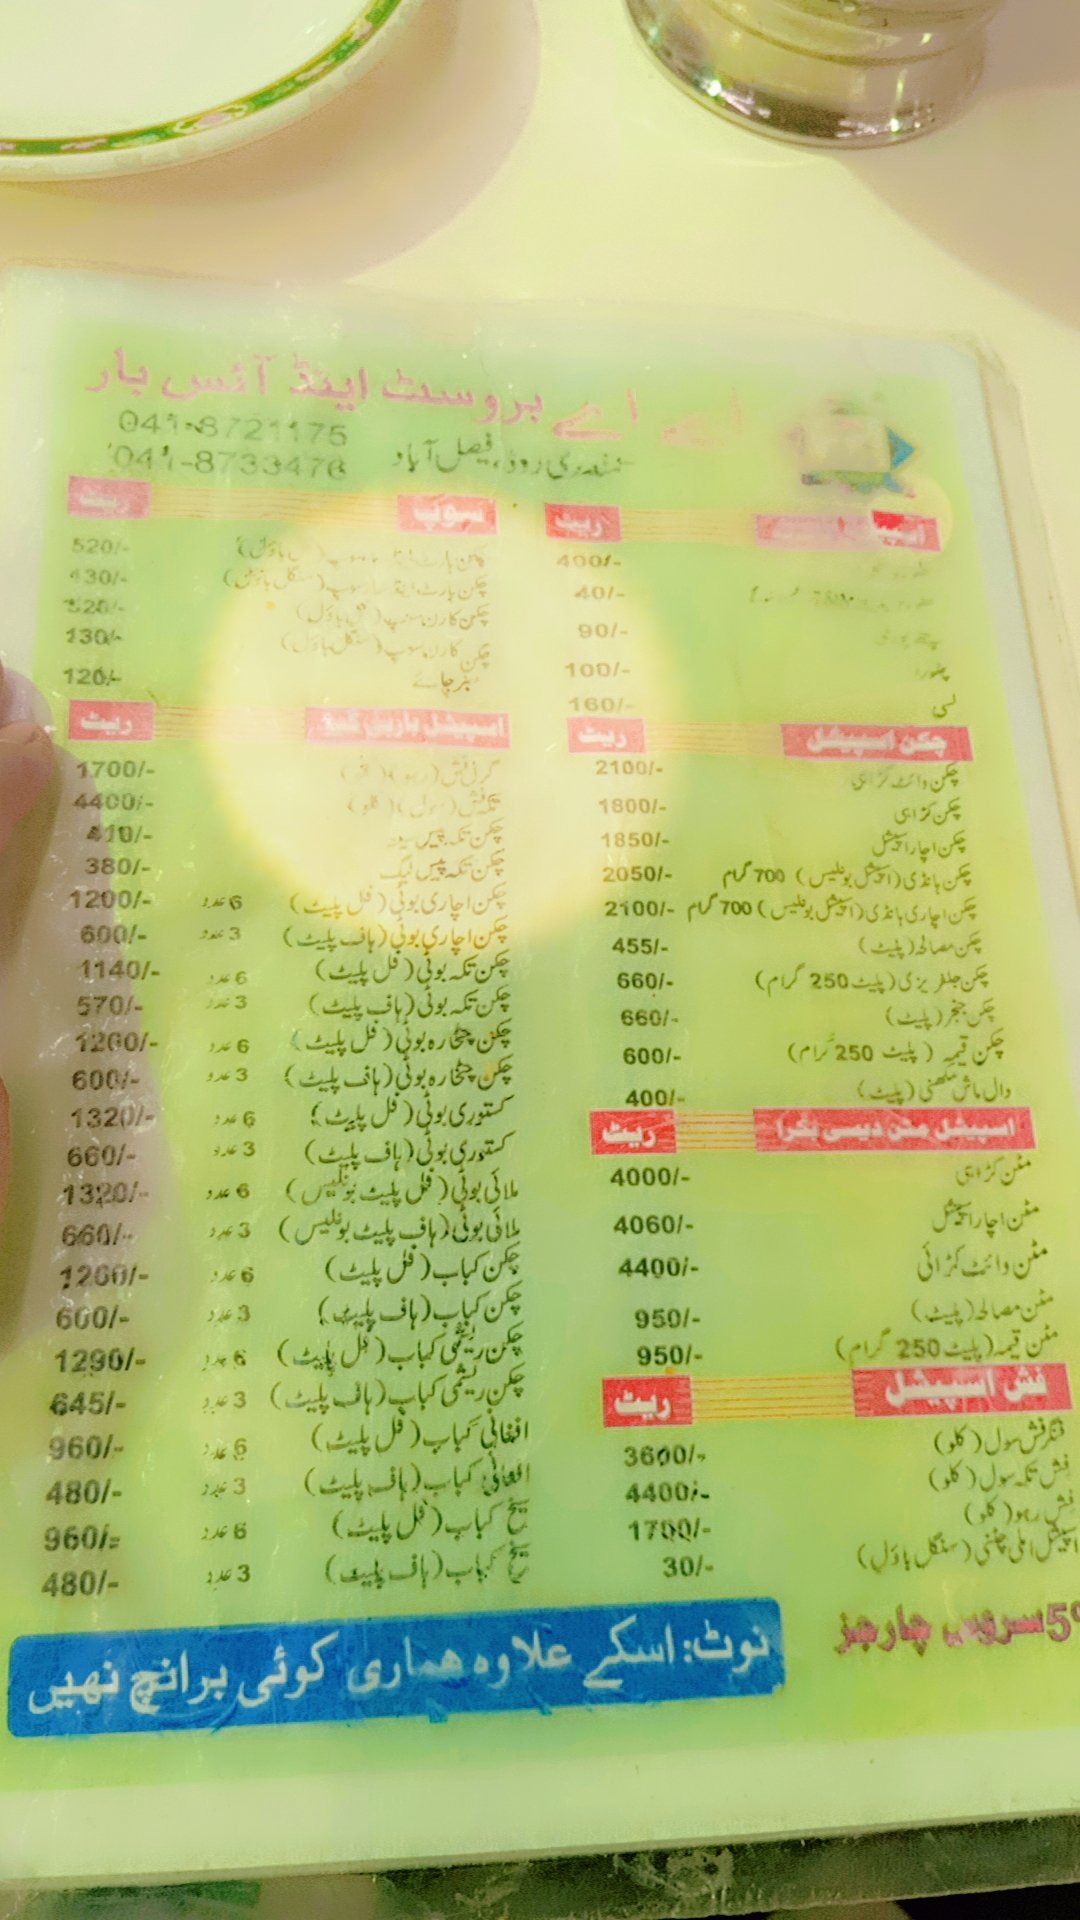 اے اے بروسٹ اینڈ آئس بار
041-8721175
041-8733476
سمندری روڈ، فیصل آباد
ریٹ
400/-
40/-
90/-
100/-
لسی 160/-
چکن اسپیشل ریٹ
چکن وائٹ کڑاہی 2100/-
چکن کڑاہی 1800/-
چکن اچار اسپیشل 1850/-
چکن ہانڈی (اسپیشل بونلیس) 700 گرام 2050/-
چکن اچاری ہانڈی (اسپیشل بونلیس) 700 گرام 2100/-
چکن مصالحہ (پلیٹ) 455/-
چکن جلفریزی (پلیٹ 250 گرام) 660/-
چکن جنجر (پلیٹ) 660/-
چکن قیمہ (پلیٹ 250 گرام) 600/-
دال ماش مکھنی (پلیٹ) 400/-
اسپیشل مٹن دیسی بکرا ریٹ
مٹن کڑاہی 4000/-
مٹن اچار اسپیشل 4060/-
مٹن وائٹ کڑائی 4400/-
مٹن مصالحہ (پلیٹ) 950/-
مٹن قیمہ (پلیٹ 250 گرام) 950/-
فش اسپیشل ریٹ
فنگر فش سول (کلو) 3600/-
فش تکہ سول (کلو) 4400/-
فش رہو (کلو) 1700/-
اسپیشل املی چٹنی (سنگل باؤل) 30/-
سوپ ریٹ
520/-
چکن ہارٹ اینڈ سار سوپ (سنگل باؤل)
چکن کارن سوپ (فل باؤل)
چکن کارن سوپ (سنگل باؤل) 130/-
سبز چائے 120/-
اسپیشل باربی کیو ریٹ
گرل فش (رہو) 1700/-
تکہ فش (سول) (کلو) 4400/-
چکن تکہ پیس سینہ 410/-
چکن تکہ پیس لیگ 380/-
چکن اچاری بوٹی (فل پلیٹ) 6 عدد 1200/-
چکن اچاری بوٹی (ہاف پلیٹ) 3 عدد 600/-
چکن تکہ بوٹی (فل پلیٹ) 6 عدد 1140/-
چکن تکہ بوٹی (ہاف پلیٹ) 3 عدد 570/-
چکن چٹخارہ بوٹی (فل پلیٹ) 6 عدد 1200/-
چکن چٹخارہ بوٹی (ہاف پلیٹ) 3 عدد 600/-
کستوری بوٹی (فل پلیٹ) 6 عدد 1320/-
کستوری بوٹی (ہاف پلیٹ) 3 عدد 660/-
ملائی بوٹی (فل پلیٹ بونلیس) 6 عدد 1320/-
ملائی بوٹی (ہاف پلیٹ بونلیس) 3 عدد 660/-
چکن کباب (فل پلیٹ) 6 عدد 1200/-
چکن کباب (ہاف پلیٹ) 3 عدد 600/-
چکن ریشمی کباب (فل پلیٹ) 6 عدد 1290/-
چکن ریشمی کباب (ہاف پلیٹ) 3 عدد 645/-
افغانی کباب (فل پلیٹ) 6 عدد 960/-
افغانی کباب (ہاف پلیٹ) 3 عدد 480/-
سیخ کباب (فل پلیٹ) 6 عدد 960/-
سیخ کباب (ہاف پلیٹ) 3 عدد 480/-
5% سروس چارجز
نوٹ: اسکے علاوہ ہماری کوئی برانچ نہیں